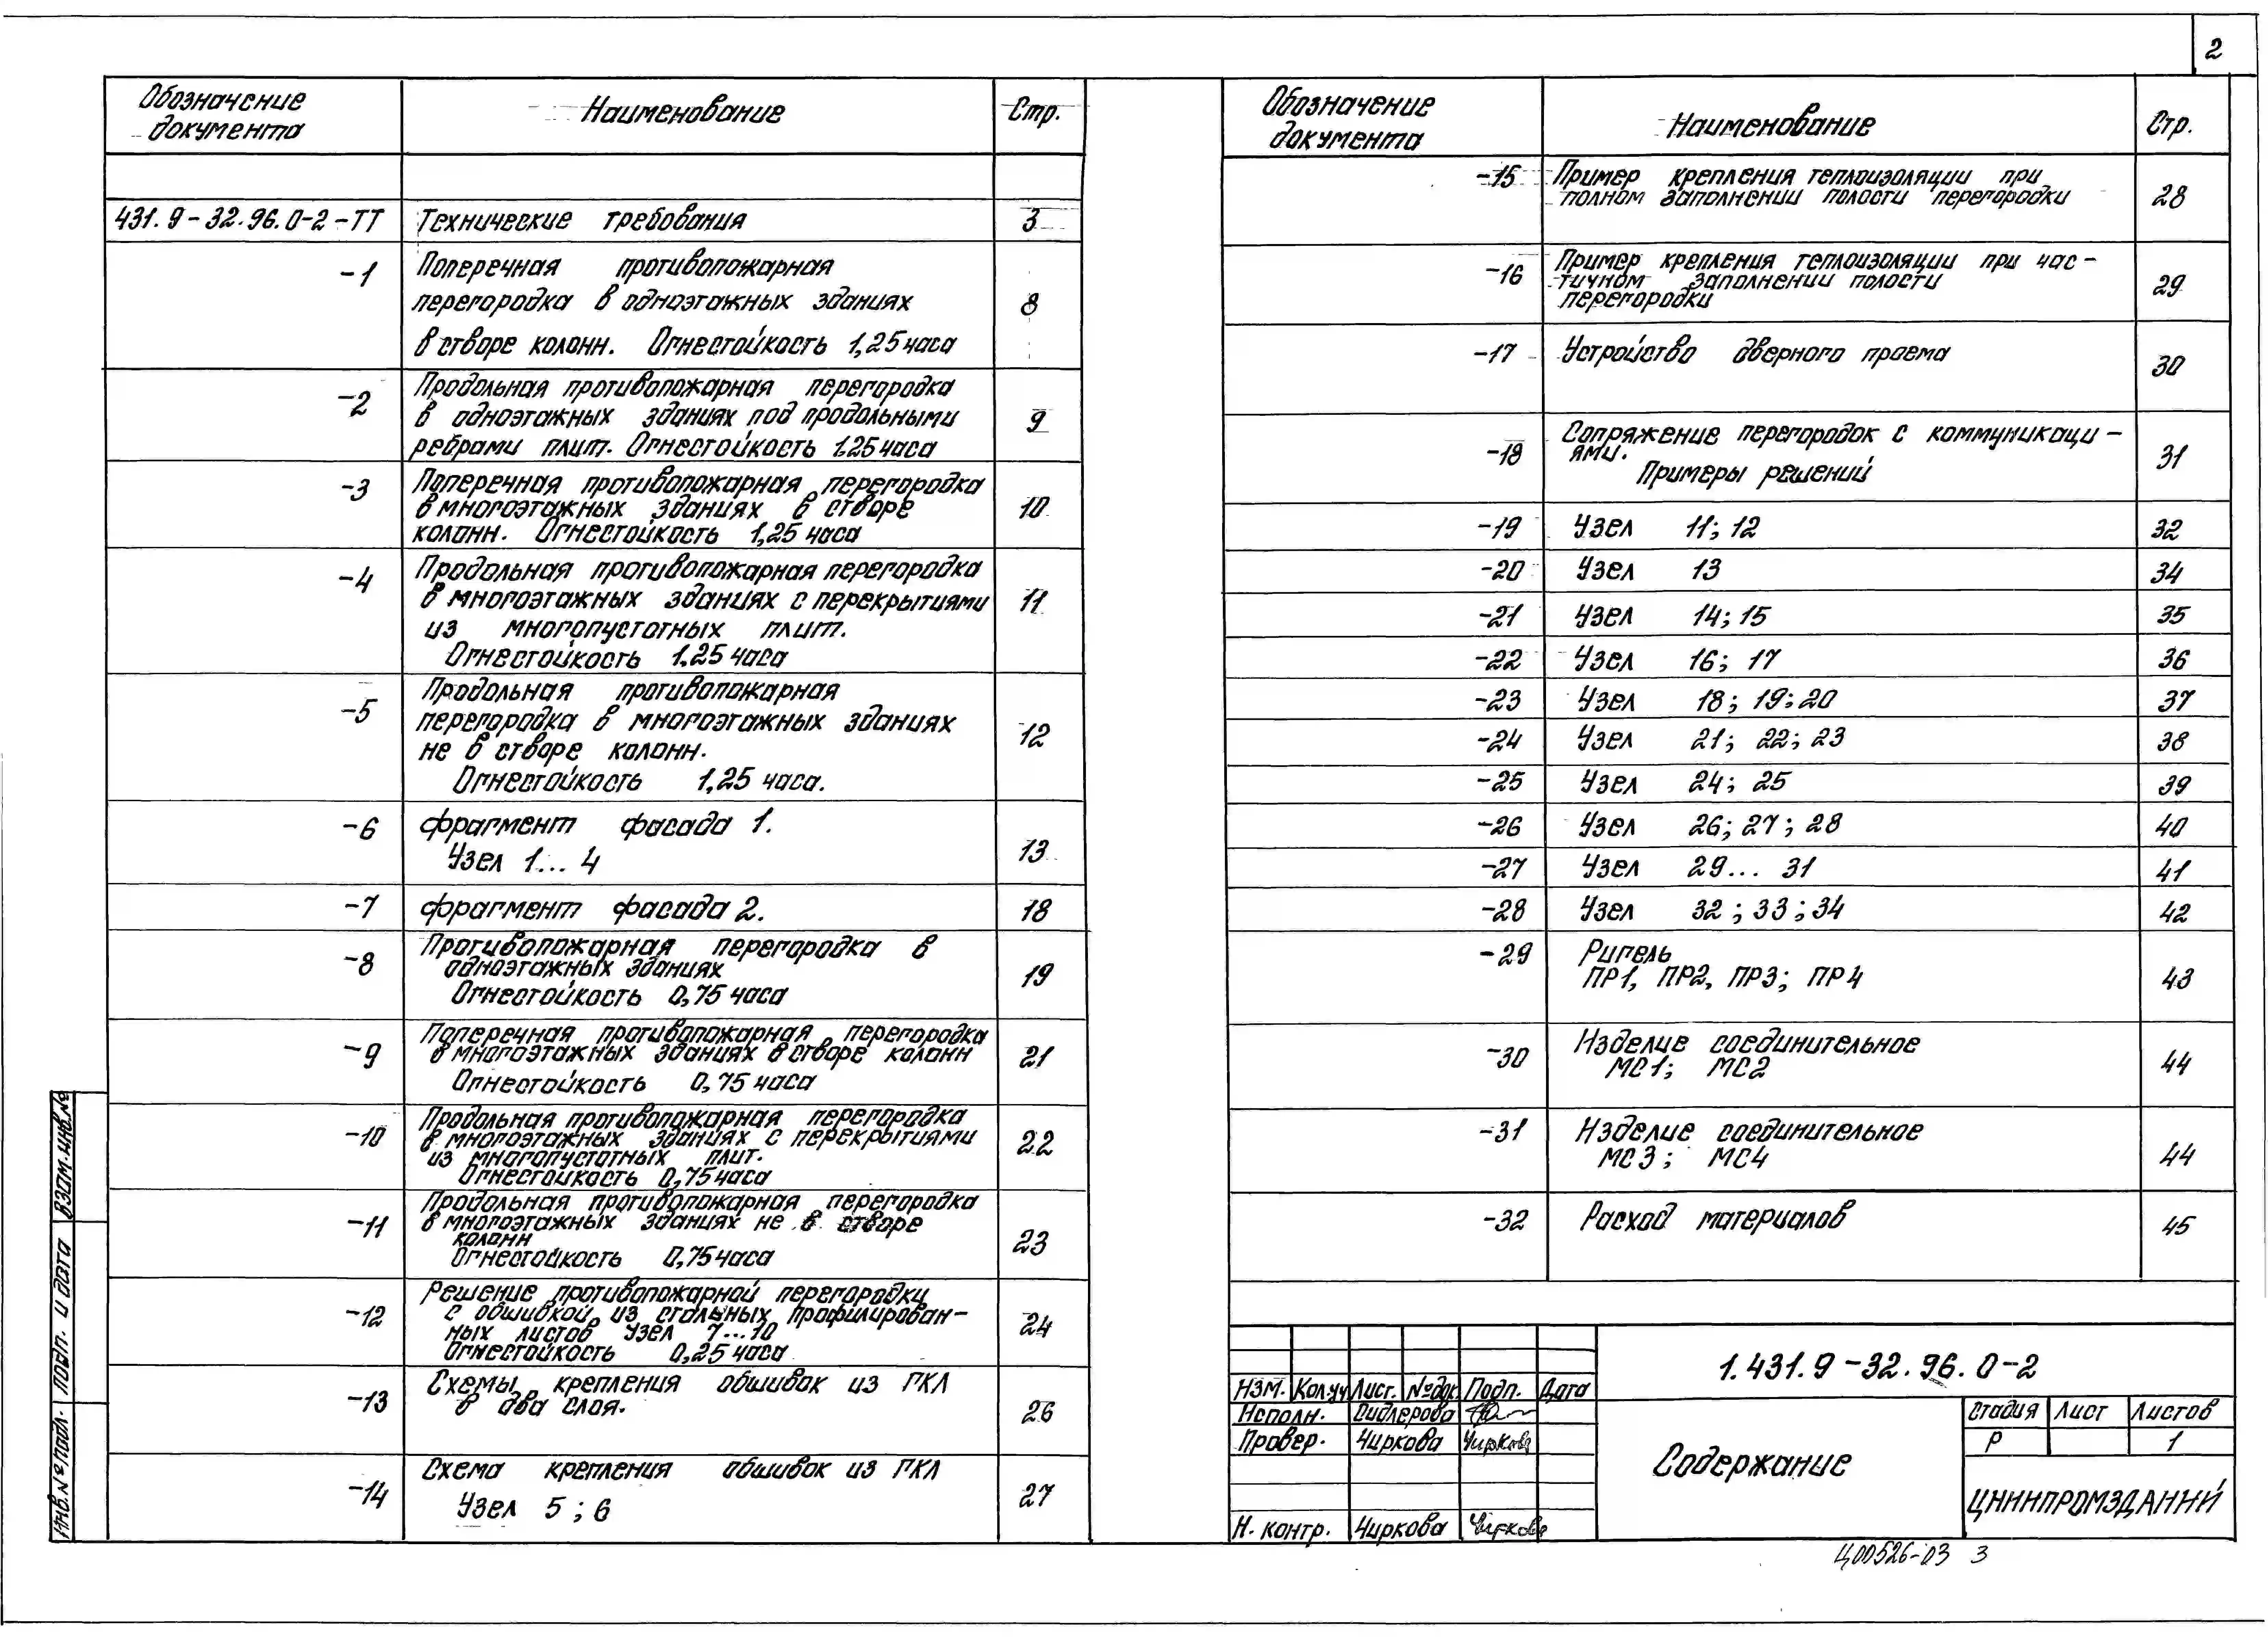 2
Обозначение документа
Наименование
Стр.
431.9-32.96.0-2-ТТ
Технические требования
3
-1
Поперечная противопожарная
перегородка в одноэтажных зданиях
в створе колонн. Огнестойкость 1,25 часа
8
-2
Продольная противопожарная перегородка
в одноэтажных зданиях под продольными
ребрами плит. Огнестойкость 1.25 часа
9
-3
Поперечная противопожарная перегородка
в многоэтажных зданиях в створе
колонн. Огнестойкость 1,25 часа
10
-4
Продольная противопожарная перегородка
в многоэтажных зданиях с перекрытиями
из многопустотных плит.
Огнестойкость 1.25 часа
11
-5
Продольная противопожарная
перегородка в многоэтажных зданиях
не в створе колонн.
Огнестойкость 1,25 часа.
12
-6
фрагмент фасада 1.
Узел 1... 4
13
-7
фрагмент фасада 2.
18
-8
Противопожарная перегородка в
одноэтажных зданиях
Огнестойкость 0,75 часа
19
-9
Поперечная противопожарная перегородка
в многоэтажных зданиях в створе колонн
Огнестойкость 0,75 часа
21
-10
Продольная противопожарная перегородка
в многоэтажных зданиях с перекрытиями
из многопустотных плит.
Огнестойкость 0,75 часа
22
-11
Продольная противопожарная перегородка
в многоэтажных зданиях не в створе
колонн
Огнестойкость 0,75 часа
23
-12
Решение противопожарной перегородки
с обшивкой из стальных профилирован-
ных листов Узел 7...10
Огнестойкость 0,25 часа
24
-13
Схемы крепления обшивок из ГКЛ
в два слоя.
26
-14
Схема крепления обшивок из ГКЛ
Узел 5 ; 6
27
Обозначение документа
Наименование
Стр.
-15
Пример крепления теплоизоляции при
полном заполнении полости перегородки
28
-16
Пример крепления теплоизоляции при час-
тичном заполнении полости
перегородки
29
-17
Устройство дверного проема
30
-18
Сопряжение перегородок с коммуникаци-
ями.
Примеры решений
31
-19
Узел 11; 12
32
-20
Узел 13
34
-21
Узел 14; 15
35
-22
Узел 16; 17
36
-23
Узел 18; 19; 20
37
-24
Узел 21; 22; 23
38
-25
Узел 24; 25
39
-26
Узел 26; 27; 28
40
-27
Узел 29... 31
41
-28
Узел 32 ; 33 ; 34
42
-29
Ригель
ПР1, ПР2, ПР3; ПР4
43
-30
Изделие соединительное
МС1; МС2
44
-31
Изделие соединительное
МС3; МС4
44
-32
Расход материалов
45
1.431.9-32.96.0-2
Изм. Кол.уч Лист. №док Подп. Дата
Исполн. Сидлерова
Провер. Чиркова Чиркова
Н. контр. Чиркова Чиркова
Содержание
Стадия Лист Листов
Р 1
ЦНИИПРОМЗДАНИЙ
Ц00526-03 3
Взам.инв.№
Подп. и дата
Инв.№ подл.